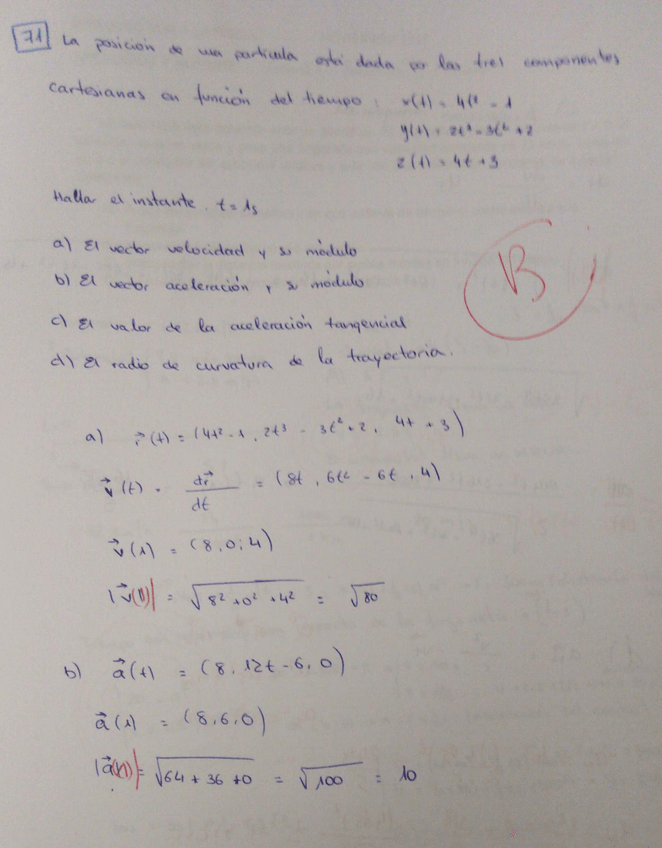 71 La posición de una partícula está dada por las tres componentes
cartesianas en función del tiempo: x(t) = 4t² - 1
y(t) = 2t³ - 3t² + 2
z(t) = 4t + 3
Hallar el instante. t = 1s
a) El vector velocidad y su módulo
b) El vector aceleración y su módulo
c) El valor de la aceleración tangencial
d) El radio de curvatura de la trayectoria.
B
a) r⃗(t) = (4t² - 1, 2t³ - 3t² + 2, 4t + 3)
v⃗(t) = dr⃗/dt = (8t, 6t² - 6t, 4)
v⃗(1) = (8, 0, 4)
|v⃗(1)| = √(8² + 0² + 4²) = √80
b) a⃗(t) = (8, 12t - 6, 0)
a⃗(1) = (8, 6, 0)
|a⃗(1)| = √(64 + 36 + 0) = √100 = 10